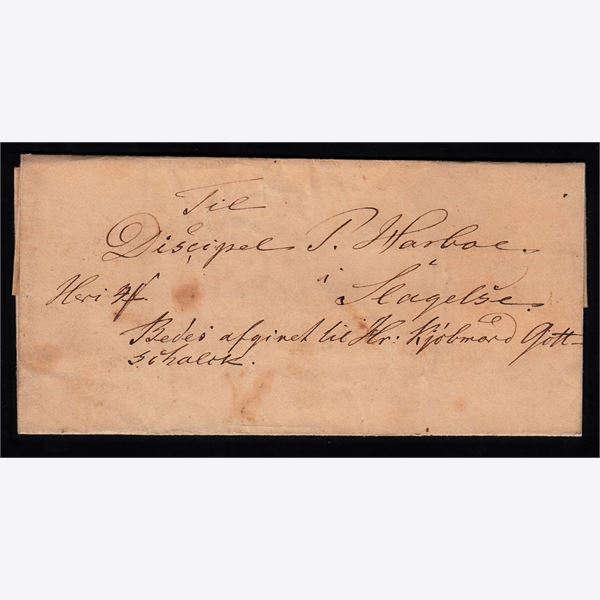 Til
Discipel P. Warboe
i
Heri Slagelse.
Bedes afgivet til Hr: Kjøbmand Gott-
schalck.